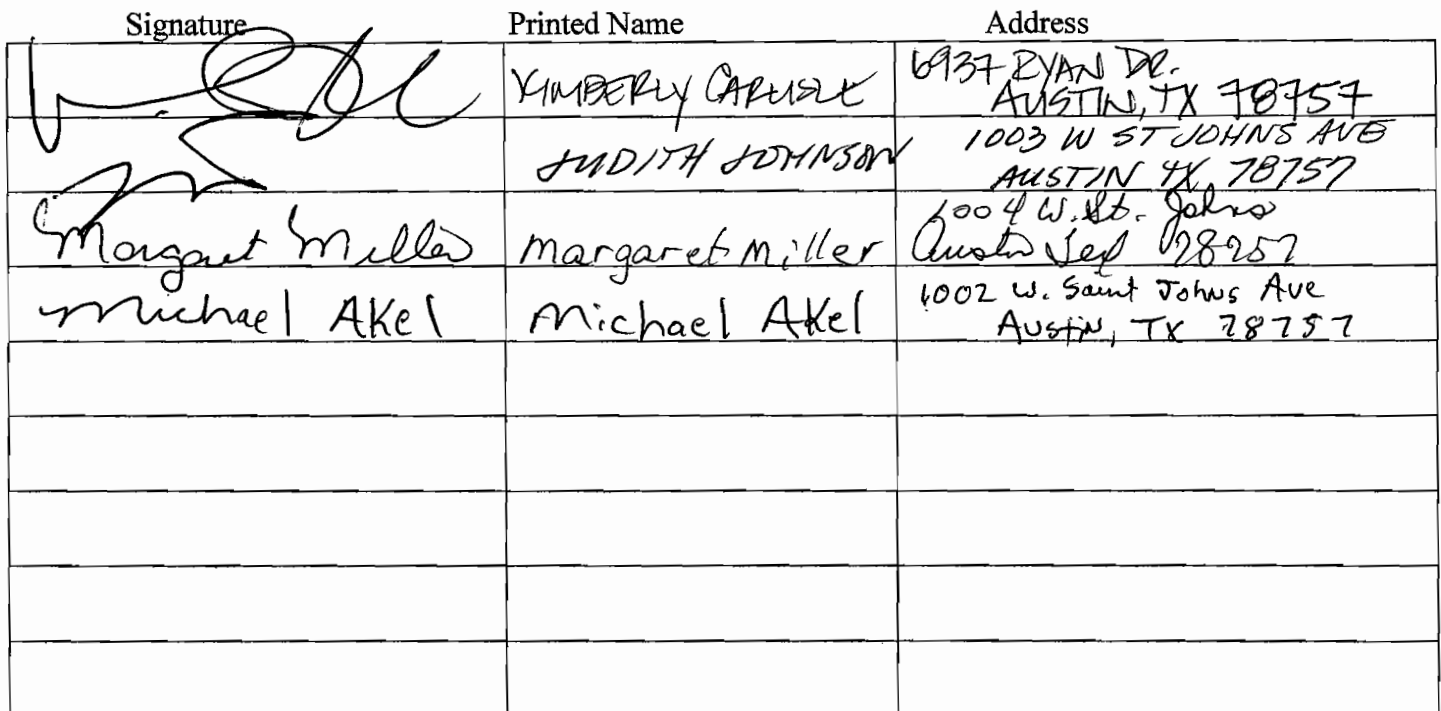 Signature Printed Name Address
KIMBERLY CARLISLE 6937 RYAN DR.
AUSTIN, TX 78757
JUDITH JOHNSON 1003 W ST JOHNS AVE
AUSTIN TX 78757
Margaret Miller Margaret Miller 1004 W. St. Johns
Austin Tex 78757
Michael Akel Michael Akel 1002 W. Saint Johns Ave
Austin, TX 78757